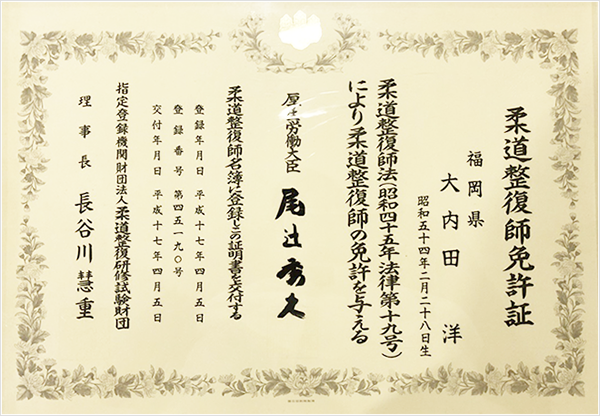 柔道整復師免許証
福岡県
大内田 洋
昭和五十四年二月二十八日生
柔道整復師法(昭和四十五年法律第十九号)
により柔道整復師の免許を与える
厚生労働大臣 尾辻秀久
柔道整復師名簿に登録しこの証明書を交付する
登録年月日 平成十七年四月五日
登録番号 第四五一九〇号
交付年月日 平成十七年四月五日
指定登録機関財団法人柔道整復研修試験財団
理事長 長谷川慧重